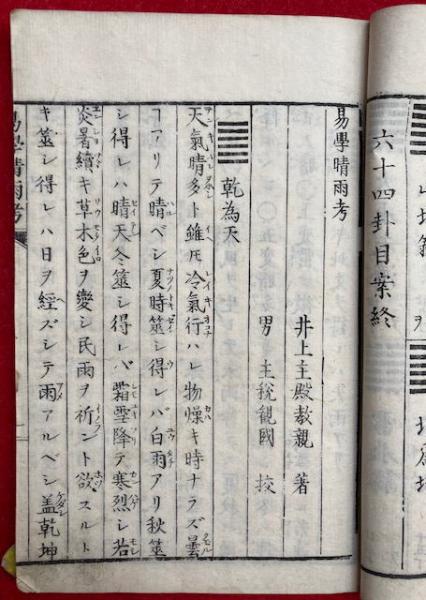 六十四卦目案終
易學晴雨考
井上主殿教親 著
男 主税觀國 挍
乾為天
天氣晴多ト雖𪜈冷氣行ハレ物燥キ時ナラズ曇
ヿアリテ晴ベシ夏時筮シ得レバ白雨アリ秋筮
シ得レハ晴天冬筮シ得レバ霜雪降テ寒烈シ若
炎暑續キ草木色ヲ變シ民雨ヲ祈ント欲スルト
キ筮シ得レハ日ヲ經ズシテ雨アルベシ盖乾坤
易學晴雨考